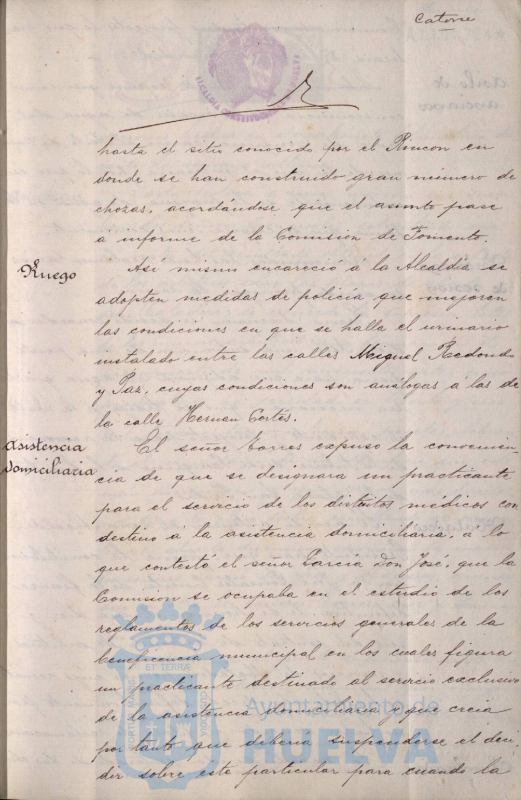 Catorce
ALCALDIA CONSTITUCIONAL HUELVA
hasta el sitio conocido por el Rincon en
donde se han construido gran número de
chozas, acordándose que el asunto pase
á informe de la Comision de Fomento.
Ruego
Así mismo encareció á la Alcaldía se
adopten medidas de policía que mejoren
las condiciones en que se halla el urinario
instalado entre las calles Miguel Redondo
y Paz, cuyas condiciones son análogas á las de
la calle Hernan Cortés.
Asistencia
domiciliaria
El señor Torres expuso la convenien-
cia de que se designara un practicante
para el servicio de los distritos médicos con
destino á la asistencia domiciliaria, á lo
que contestó el señor García don José, que la
Comision se ocupaba en el estudio de los
reglamentos de los servicios generales de la
beneficencia municipal en los cuales figura
un practicante destinado al servicio exclusivo
de la asistencia domiciliaria y que creia
por tanto que deberia suspenderse el deci-
dir sobre este particular para cuando la
PORTUS MARIS ET TERRÆ CUSTODIA
Ayuntamiento de
HUELVA